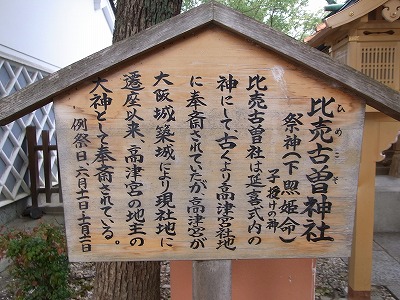 比売古曽神社
ひめこそ
祭神（下照姫命）
子授けの神
比売古曽社は延喜式内の
神にして、古くより高津宮社地
に奉斎されていたが、高津宮が
大阪城築城により現社地に
遷座以来、高津宮の地主の
大神として奉斎されている。
例祭日 六月十一日 十月一日